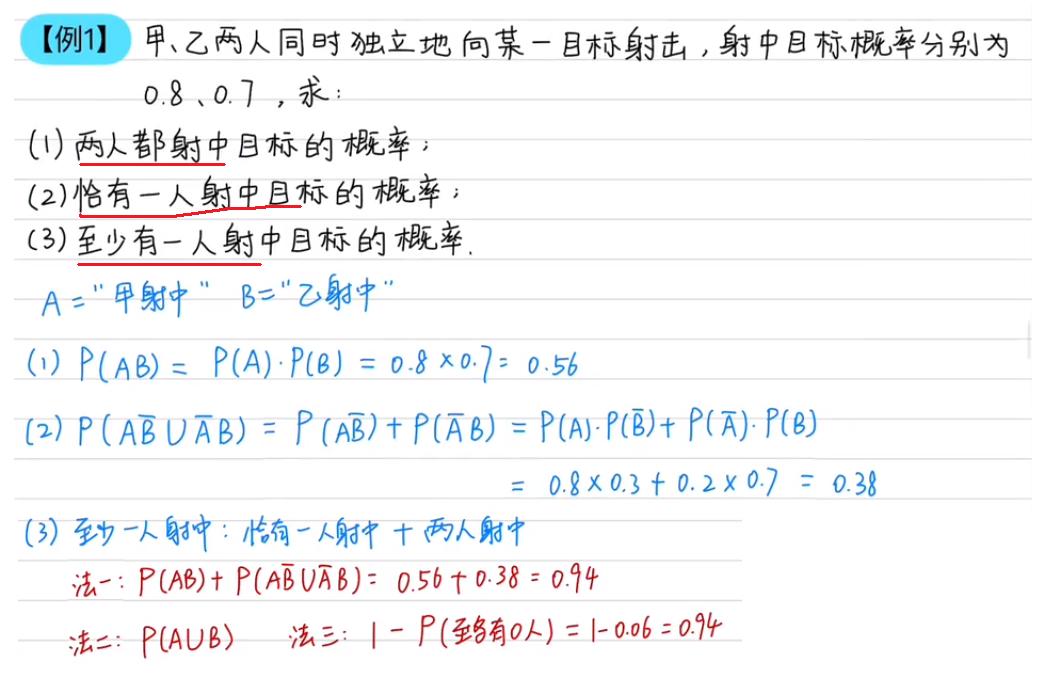 【例1】 甲、乙两人同时独立地向某一目标射击，射中目标概率分别为
0.8、0.7，求：
(1) 两人都射中目标的概率；
(2) 恰有一人射中目标的概率；
(3) 至少有一人射中目标的概率.
A = "甲射中" B = "乙射中"
(1) P(AB) = P(A)·P(B) = 0.8×0.7 = 0.56
(2) P(AB̅∪A̅B) = P(AB̅)+P(A̅B) = P(A)·P(B̅)+P(A̅)·P(B)
= 0.8×0.3+0.2×0.7 = 0.38
(3) 至少一人射中：恰有一人射中 + 两人射中
法一：P(AB)+P(AB̅∪A̅B) = 0.56+0.38 = 0.94
法二：P(A∪B) 法三：1-P(至多有0人) = 1-0.06 = 0.94